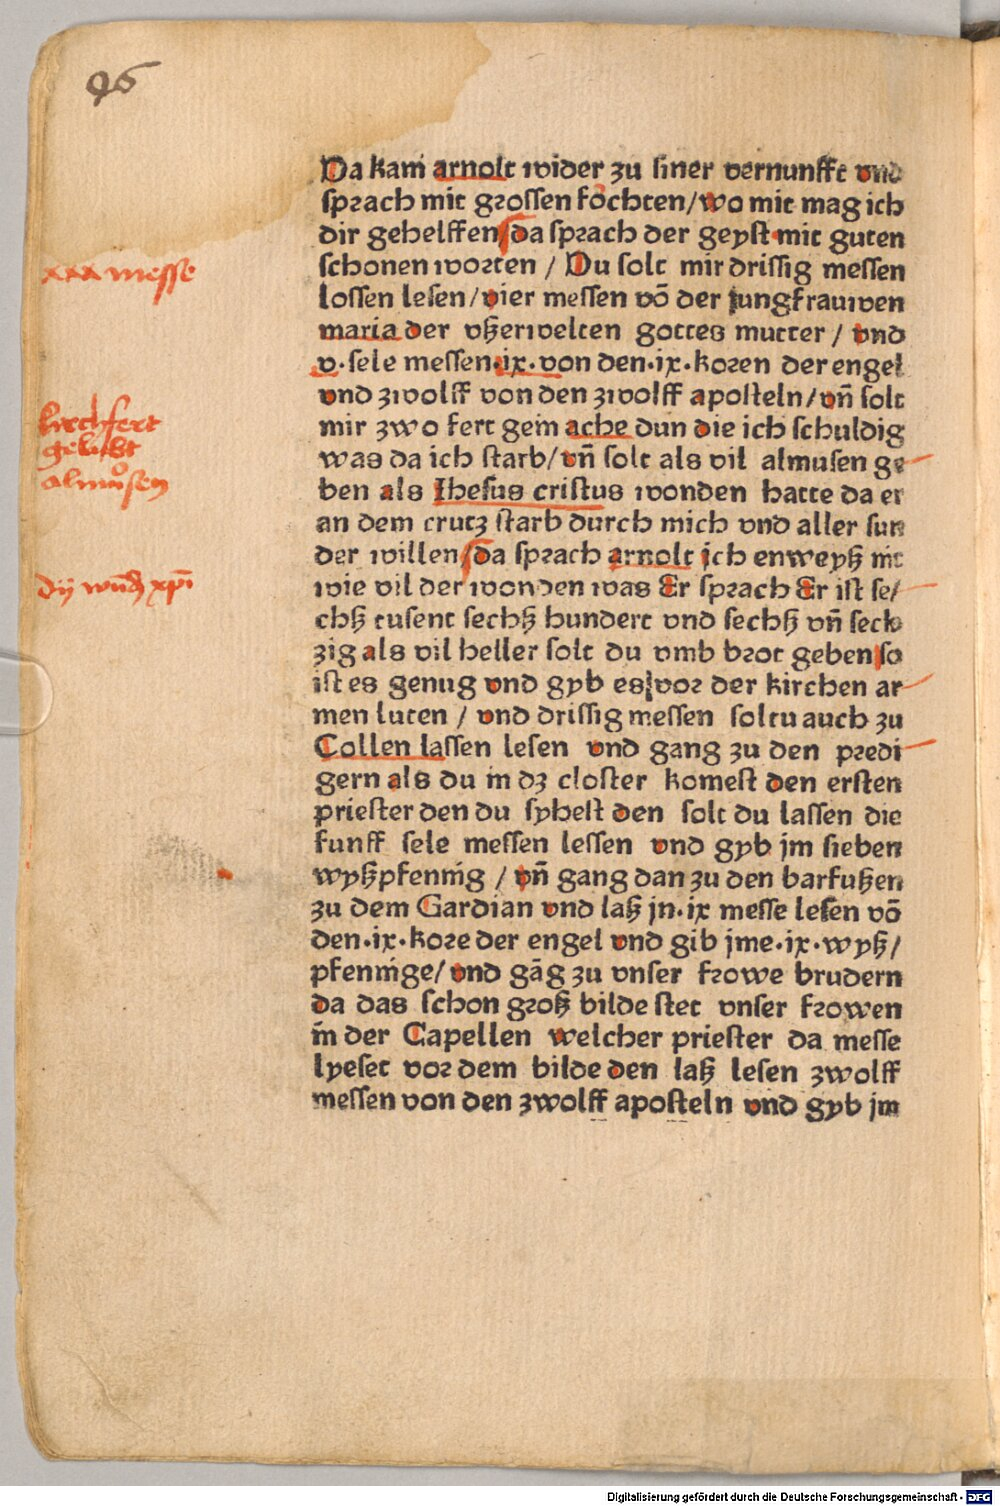 96
Da kam̄ arnolt wider zu siner vernunfft vnd
sprach mit grossenföchten/wo mit mag ich
dir gehelffen da sprach der geyst mit guten
schonen worten / Du solt mir drissig messen
xxx messe
lossen lesen/vier messen vō der jungfrauwen
maria der vßerwelten gottes mutter / vnd
v.sele messen.ix.von den.ix.koren der engel
vnd zwolff von den zwolff aposteln/vn̄ solt
kirchfert
mir zwo fert gem ache dun die ich schuldig
gelubt
was da ich starb/vn̄ solt als vil almusen ge
almůsen
ben als Ihesus cristus wonden hatte da er
an dem crutz starb durch mich vnd aller sun
der willen da sprach arnolt ich enweyß nit
wie vil der wonden was Er sprach Er ist se/
chß tusent sechß hundert vnd sechß vn̄ sech
zig als vil heller solt du vmb brot geben so
ist es genug vnd gyb es vor der kirchen ar
men luten / vnd drissig messen soltu auch zu
Collen lassen lesen vnd gang zu den predi
gern als du in dz closter komest den ersten
priester den du syhest den solt du lassen die
funff sele messen lessen vnd gyb jm sieben
wyßpfennig / vn̄ gang dan zu den barfußen
zu dem Gardian vnd laß jn.ix messe lesen vō
den.ix.kore der engel vnd gib jme.ix.wyß/
pfennige/vnd gāg zu vnser frowe brudern
da das schon groß bilde stet vnser frowen
in der Capellen welcher priester da messe
lyeset vor dem bilde den laß lesen zwolff
messen von den zwolff aposteln vnd gyb jm
Digitalisierung gefördert durch die Deutsche Forschungsgemeinschaft - DFG